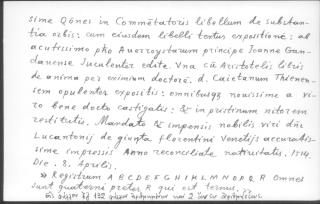 sime Qōnes in Commētatoris libellum de substan-
tia orbis: cum eiusdem libelli textus expositione: ab
acutissimo pho Averroystarum principe Joanne Gan-
davense luculenter edite. Una cū Aristotelis libris
de anima per eximium doctorē. d. Caietanum Thienen-
sem opulenter expositis: omnibusq; nouissime a vi-
ro bene docto castigatis: & in pristinum nitorem
restitutis. Mandato & impensis nobilis viri dñi
Lucantonij de giunta florentini Venetijs accuratis-
sime impressis. Anno reconciliate nativitatis. 1514.
Die. 8. Aprilis.
» Registrum A B C D E F G H I K L M N O P Q R Omnes
sunt quaterni preter R qui est ternus.